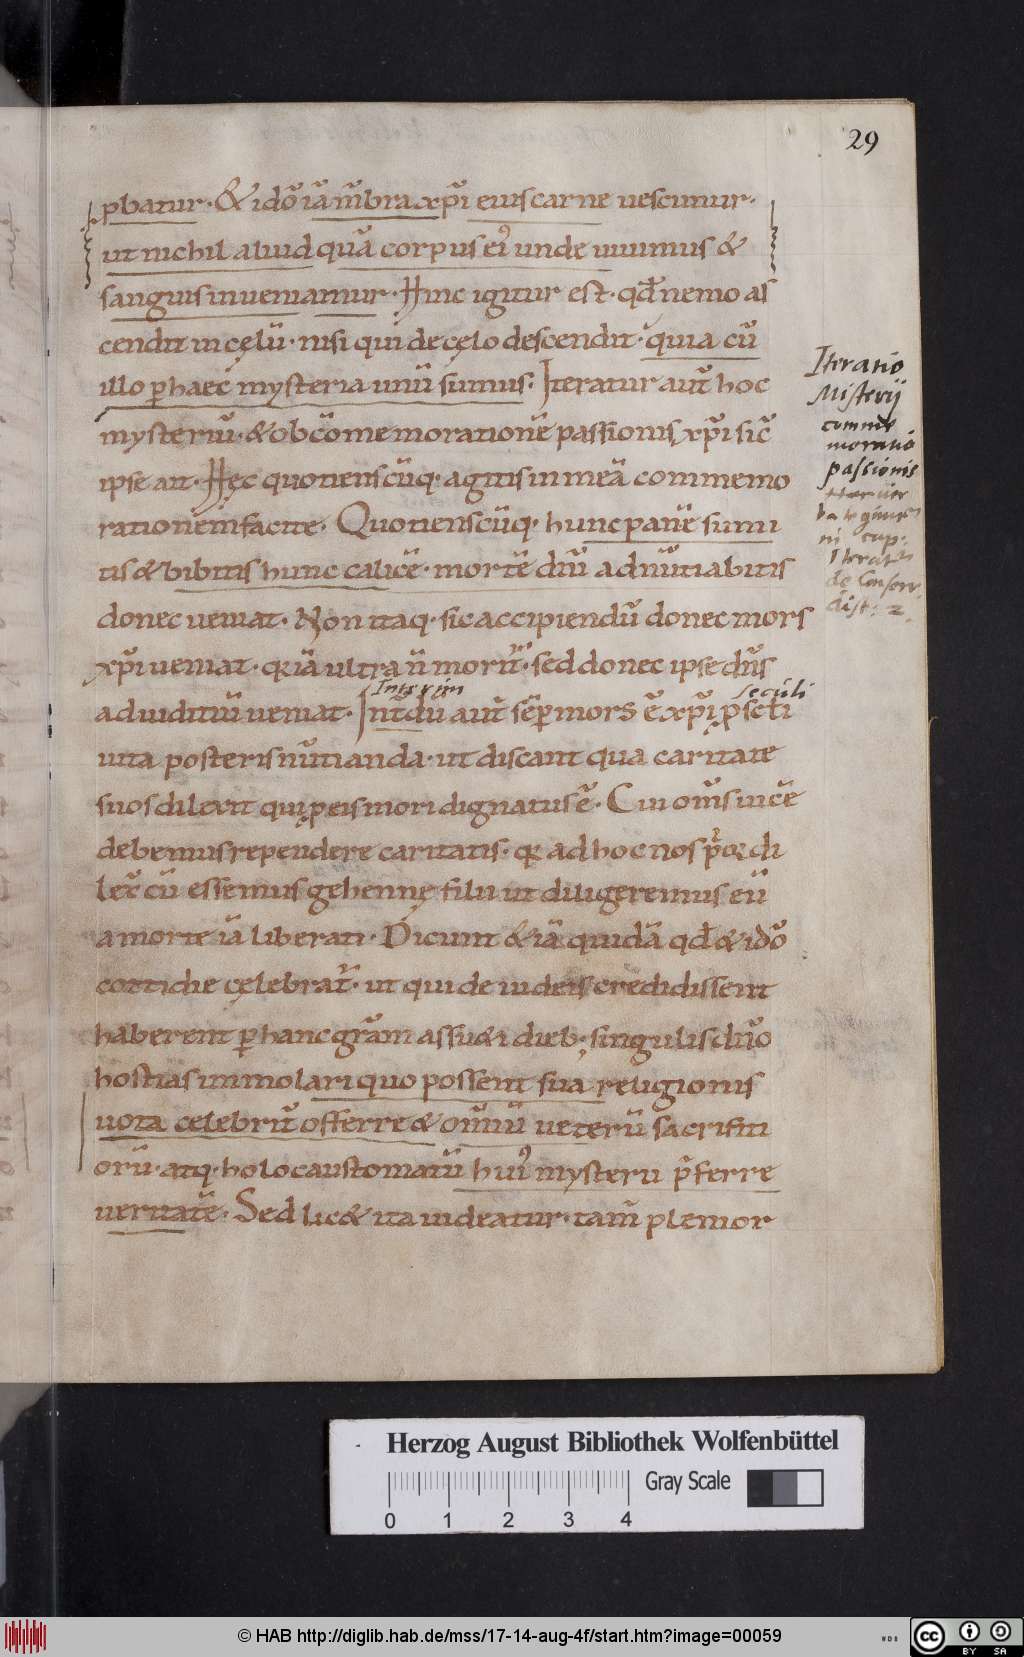 29
ꝓbatur · & idō iā m̄bra xp̄i eius carne uescimur ·
ut nichil aliud quā corpus ei' unde uiuimus &
sanguis inueniamur · Hinc igitur est · qd̄ nemo as
cendit in cęlū · nisi qui de cęlo descendit · quia cū
illo ꝑ haec mysteria unū sumus · Iteratur aut̄ hoc
mysteriū · & ob cōmemorationē passionis xp̄i sic̄
ipse ait · Hęc quotienscūq · agitis in meā commemo
rationem facite · Quotienscūq · hunc panē sumi
tis & bibitis hunc calicē · mortē dn̄i adnūtiabitis
donec ueniat · Non itaq · sic accipiendū donec mors
xp̄i ueniat · qꝛ iā ultra n̄ morit̄ · sed donec ipse dn̄s
Interim seculi
ad iuditiū ueniat · Int̄dū aut̄ sēꝑ mors ē xp̄i ꝓ scl̄i
uita posteris nūtianda · ut discant qua caritate
suos dilexit qui ꝓ eis mori dignatus ē · Cui om̄s uicē
debemus rependere caritatis · qꝛ ad hoc nos pꝛ̄ꝛ di
lex̄ cū essemus gehennę filii ut diligeremus eū
a morte iā liberati · Dicunt & iā quidā qd̄ & idō
cottidie cęlebrat̄ · ut qui de iudeis credidissent
haberent ꝑ hanc grā̄m assu&i dieb; singulis dn̄o
hostias immolari quo possent sua religionis
uota celebrit̄ offerre & om̄iū ueterū sacrifiti
orū · atq · holocaustomatū hui' mysterii p̄ferre
ueritatē · Sed lic& ita uideatur · tam̄ pl' emor
Iteratio
Misterij
comme
moratio
passionis
Iterat
de Consecr.
dist: 2.
Herzog August Bibliothek Wolfenbüttel
Gray Scale
0 1 2 3 4
© HAB http://diglib.hab.de/mss/17-14-aug-4f/start.htm?image=00059
WDB
cc BY SA